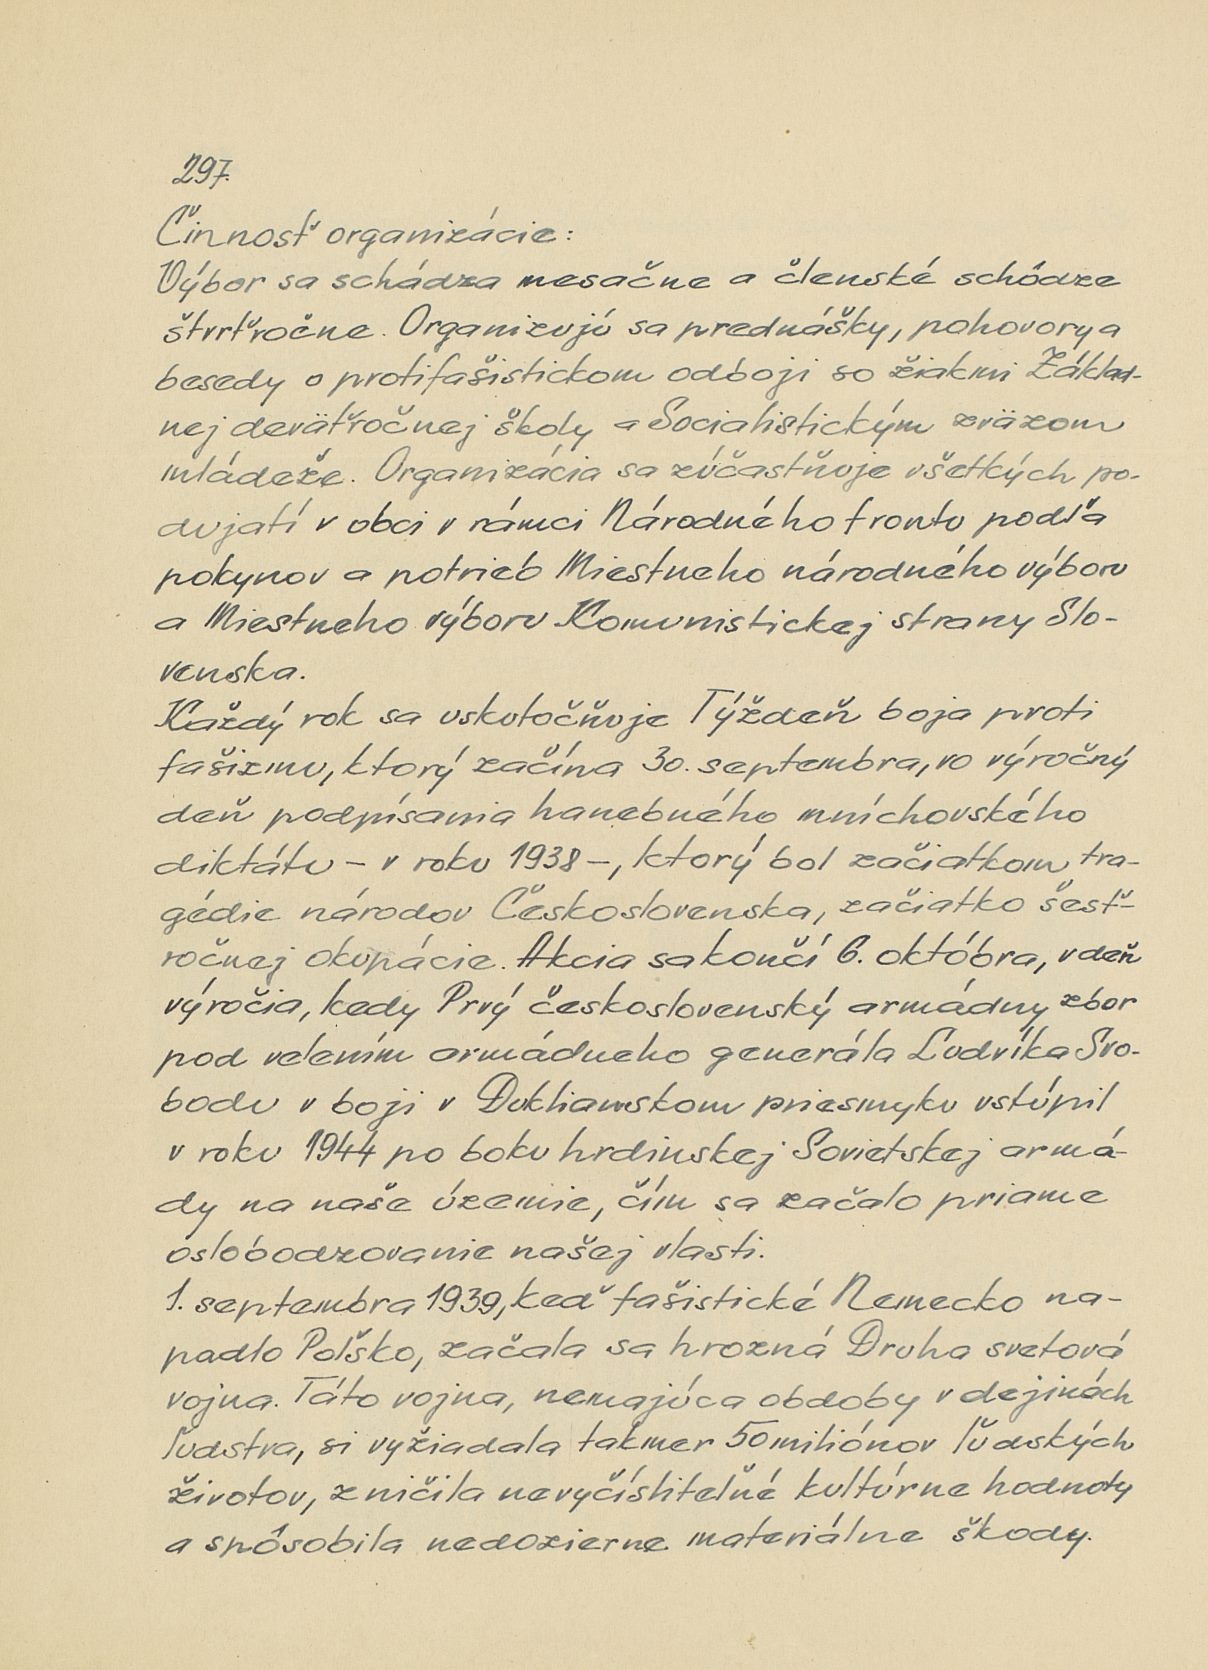 297.
Činnosť organizácie:
Výbor sa schádza mesačne a členské schôdze
štvrťročne. Organizujú sa prednášky, pohovory a
besedy o protifašistickom odboji so žiakmi Základ-
nej deväťročnej školy a Socialistickým zväzom
mládeže. Organizácia sa zúčastňuje všetkých po-
dujatí v obci v rámci Národného frontu podľa
pokynov a potrieb Miestneho národného výboru
a Miestneho výboru Komunistickej strany Slo-
venska.
Každý rok sa uskutočňuje Týždeň boja proti
fašizmu, ktorý začína 30. septembra, vo výročný
deň podpísania hanebného mníchovského
diktátu – v roku 1938 –, ktorý bol začiatkom tra-
gédie národov Československa, začiatko šesť-
ročnej okupácie. Akcia sa končí 6. októbra, v deň
výročia, kedy Prvý československý armádny zbor
pod velením armádneho generála Ludvíka Svo-
bodu v boji v Duklianskom priesmyku vstúpil
v roku 1944 po boku hrdinskej Sovietskej armá-
dy na naše územie, čím sa začalo priame
oslobodzovanie našej vlasti.
1. septembra 1939, keď fašistické Nemecko na-
padlo Poľsko, začala sa hrozná Druha svetová
vojna. Táto vojna, nemajúca obdoby v dejinách
ľudstva, si vyžiadala takmer 50 miliónov ľudských
životov, zničila nevyčísliteľné kultúrne hodnoty
a spôsobila nedozierne materiálne škody.